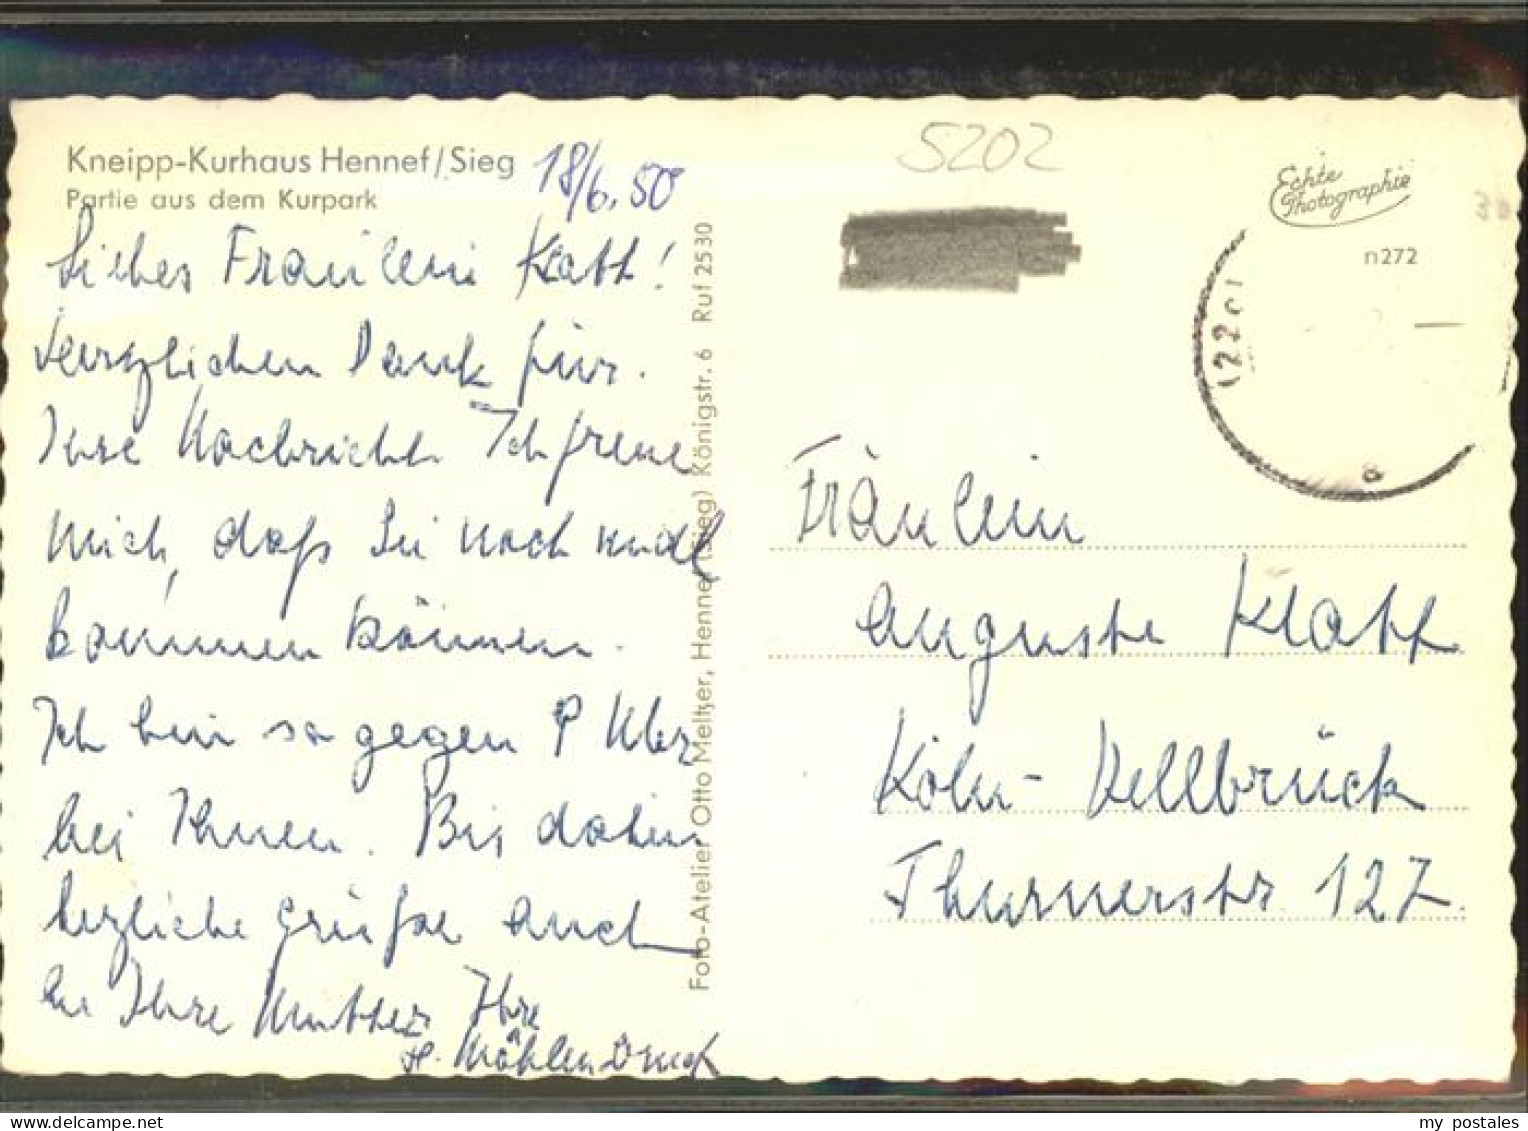 Kneipp-Kurhaus Hennef/Sieg
Partie aus dem Kurpark
18/6.50
Liebes Fräulein Klatt!
Herzlichen Dank für
Ihre Nachricht. Ich freue
mich, daß Sie noch mal
kommen können.
Ich bin so gegen 9 Uhr
bei Ihnen. Bis dahin
herzliche Grüße auch
an Ihre Mutter Ihre
H.
Foto-Atelier Otto Meltzer, Hennef (Sieg) Königstr. 6 Ruf 2530
5202
Echte
Photographie
n272
(22c
a
Fräulein
Auguste Klatt
Köln-Dellbrück
Thurnerstr 127.
my postales